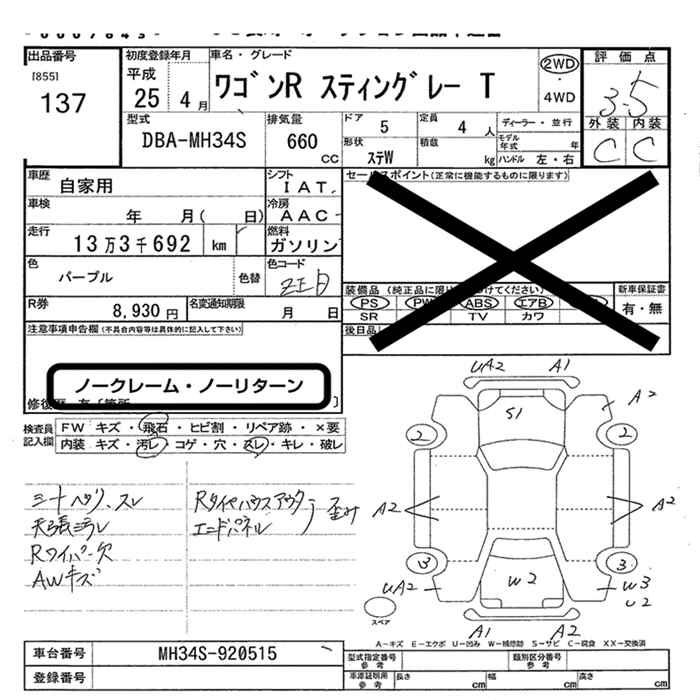 出品番号
[855]
137
初度登録年月
平成
25 4 月
車名・グレード
ワゴンR スティングレー T
2WD
・
4WD
評価点
3.5
外装 内装
C C
型式
DBA-MH34S
排気量
660
CC
ドア 5
定員 4 人
形状 ステW
積載 kg
ディーラー・並行
モデル年式 年
ハンドル 左・右
車歴 自家用
シフト IAT
車検 年 月( 日)
冷房 AAC
走行 13万3千692 km
燃料 ガソリン
色 パープル 色替
色コード ZJ
R券 8,930 円
名変通知期限 月 日
セールスポイント(正常に機能するものに限ります)
装備品(純正品に限り
付けてください)
新車保証書
PS PW ABS エアB
SR TV カワ
有・無
後日品
注意事項申告欄(不具合内容等は具体的に記入して下さい)
ノークレーム・ノーリターン
検査員記入欄
FW キズ・飛石・ヒビ割・リペア跡・×要
内装 キズ・汚レ・コゲ・穴・スレ・キレ・破レ
シートヘタリ、スレ
天張シミヨゴレ
Rワイパー欠
AWキズ
Rタイヤハウスアウター
エンドパネル
歪み
UA2 A1
S1
A2
2 2
A2 A2
3 3
UA2 W2 W3
U2
スペア
A1 A2
A-キズ E-エクボ U-凹み W-補修跡 S-サビ C-腐食 XX-交換済
車台番号 MH34S-920515
登録番号
型式指定番号
参考
類別区分番号
参考
車庫証明用
参考
長さ cm
幅 cm
高さ cm